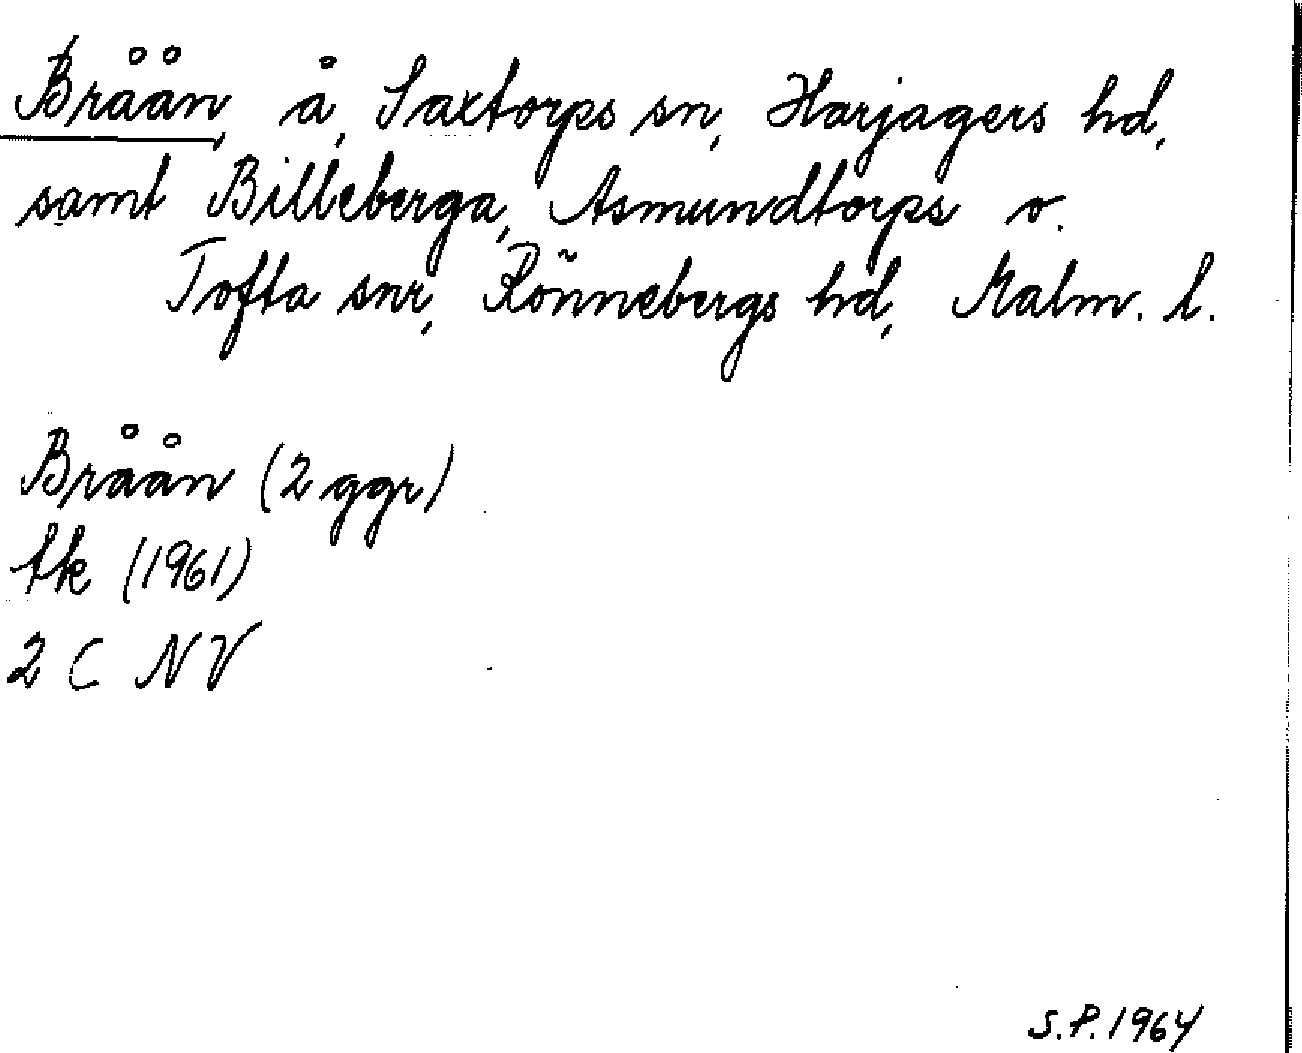 Bråån, å, Saxtorps sn, Harjagers hd,
samt Billeberga, Asmundtorps o.
Tofta snr, Rönnebergs hd, Malm. l.
Bråån (2 ggr)
tk (1961)
2 C NV
S.P. 1964